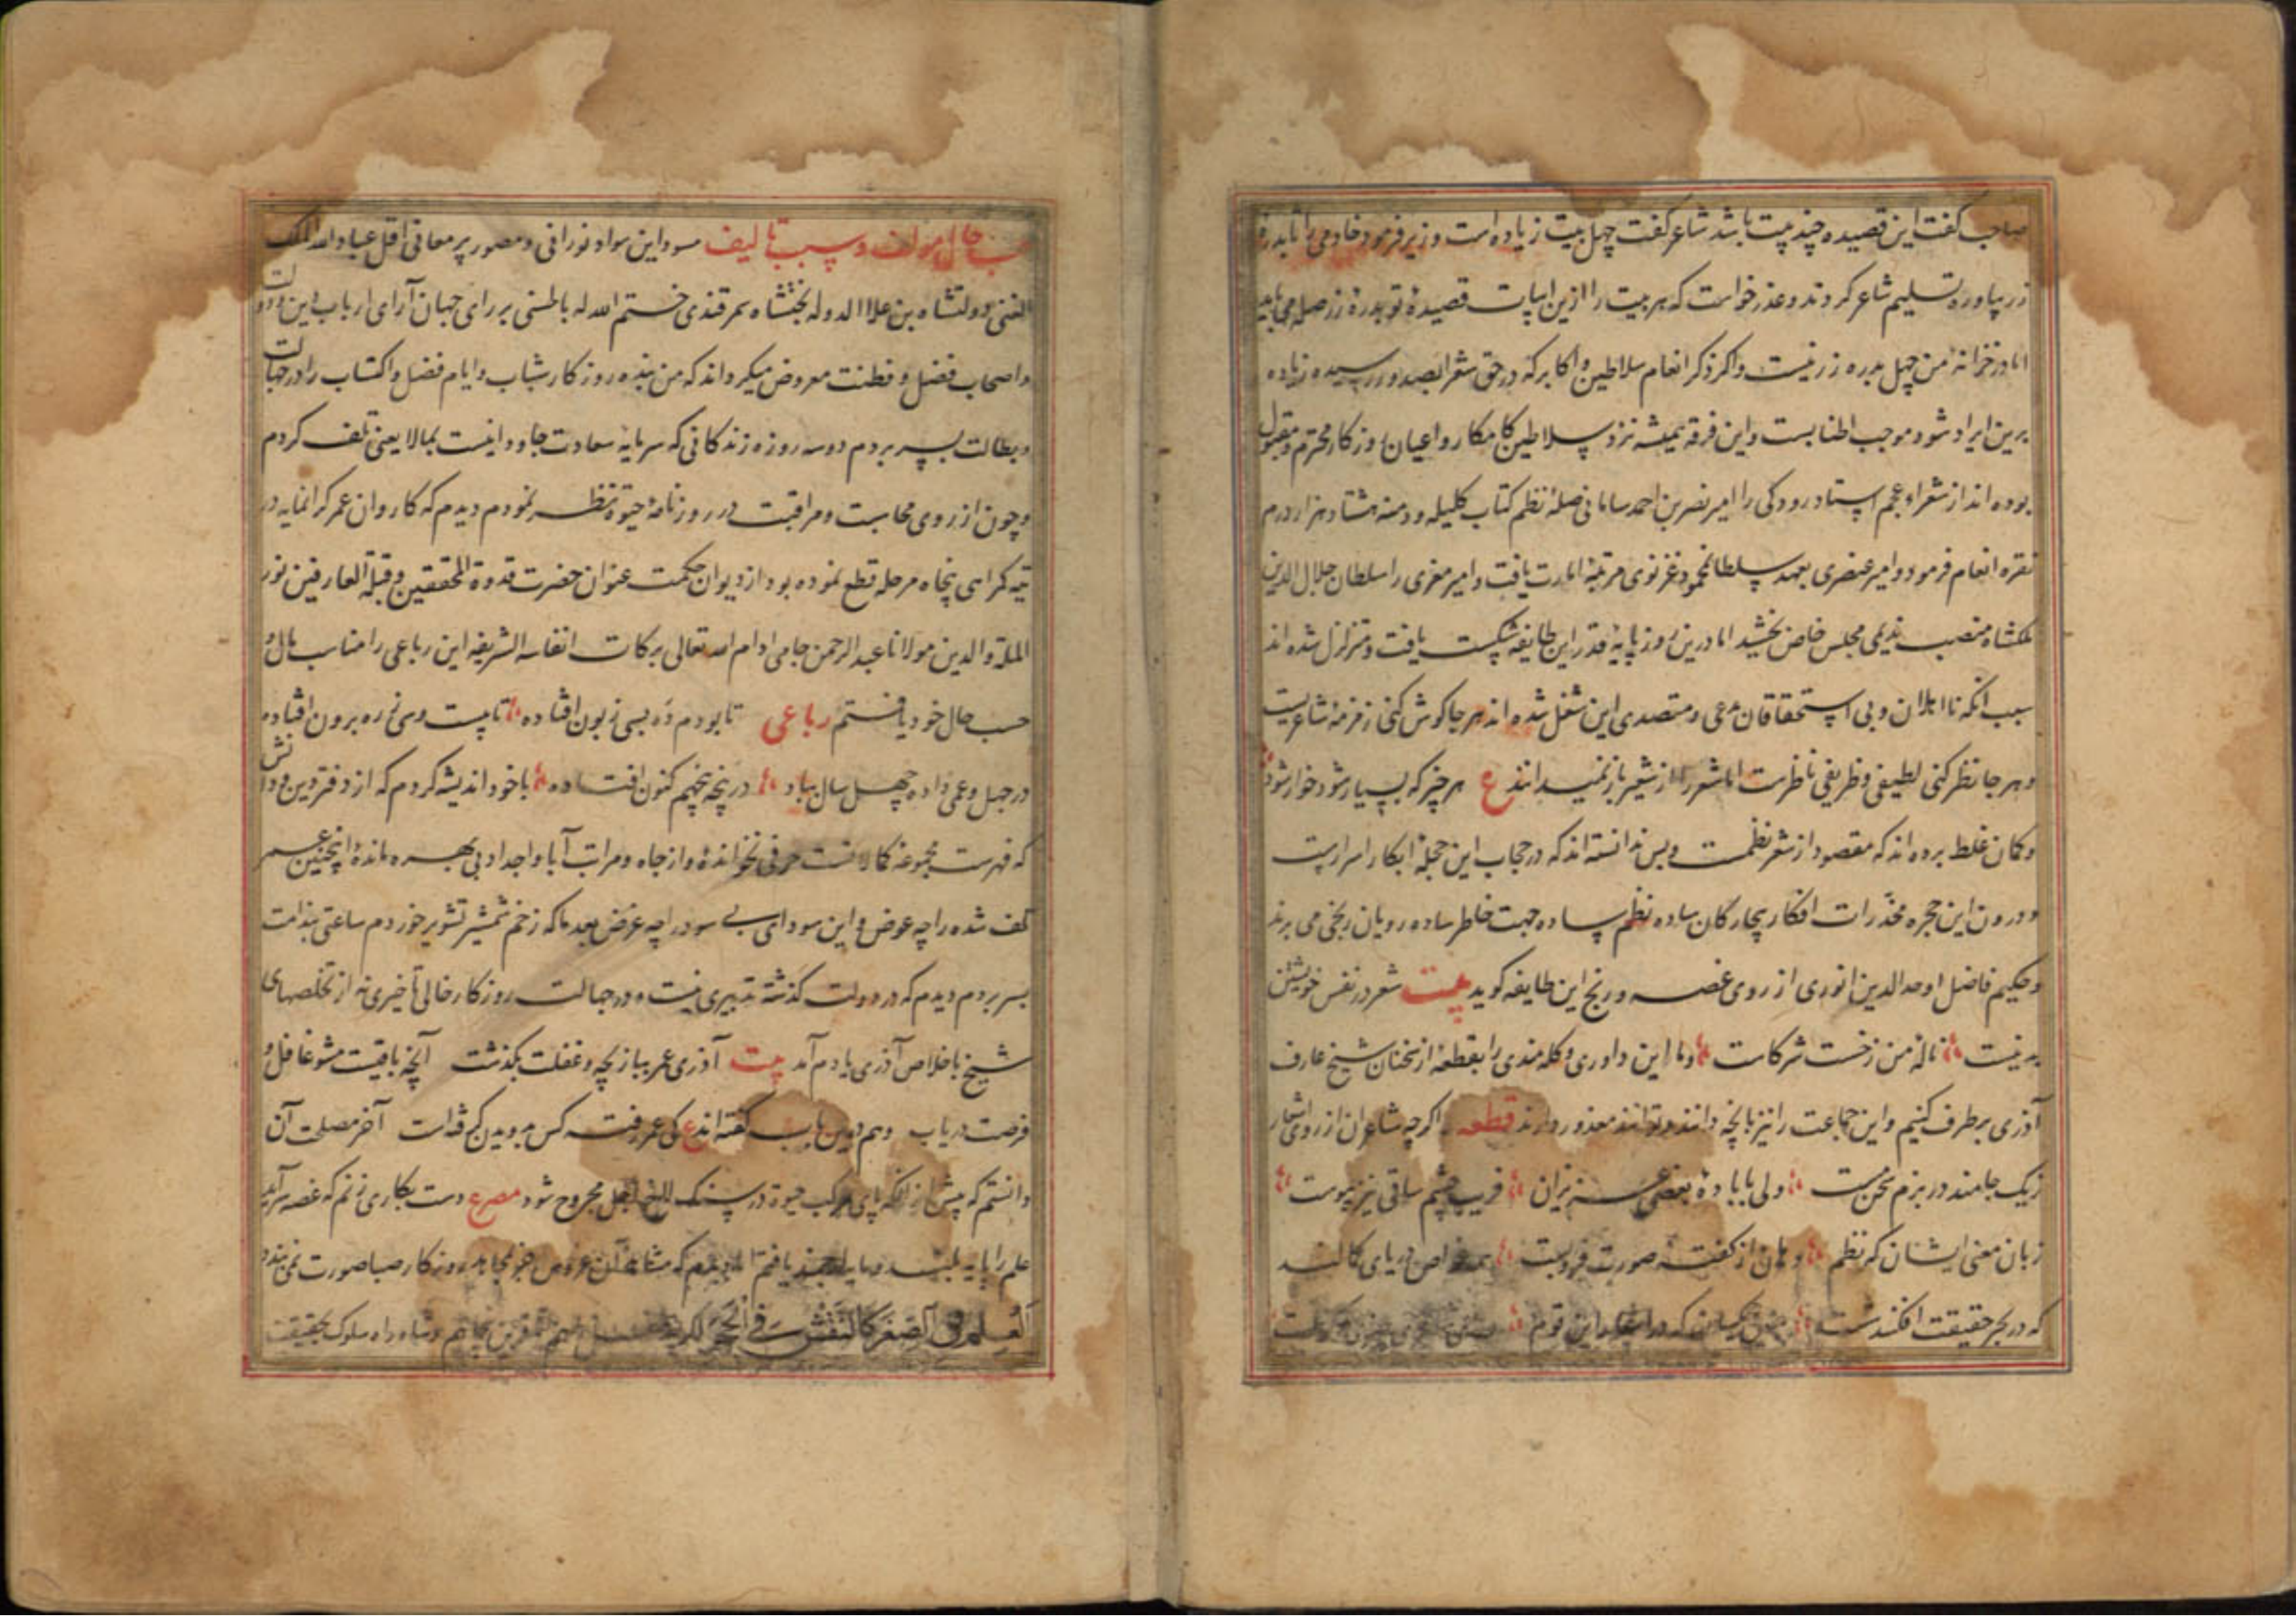 صاحب گفت این قصیده چند بیت باشد شاعر گفت چهل بیت زیاده است وزیر فرمود خادمی را تا بدره
زر بیاورد و تسلیم شاعر کردند و عذر خواست که هر بیت را ازین ابیات قصیدهٔ تو بدرهٔ زر صله می باید
اما در خزانهٔ من چهل بدره زر نیست و اکر ذکر انعام سلاطین و اکابر که در حق شعرا بصدور رسیده زیاده
برین ایراد شود موجب اطنابست و این فرقه همیشه نزد سلاطین کامکار و اعیان روزکار محترم و مقبول
بوده اند از شعراء عجم استاد رودکی را امیر نصر بن احمد سامانی صلهٔ نظم کتاب کلیله و دمنه هشتاد هزار درم
نقره انعام فرمود و امیر عنصری بعهد سلطان محمود غزنوی مرتبهٔ امارت یافت و امیر معزی را سلطان جلال الدین
ملکشاه منصب ندیمی مجلس خاص بخشید اما درین روز پایهٔ قدر این طایفه شکست یافت و متزلزل شده اند
سبب آنکه نااهلان و بی استحقاقان مدعی و متصدی این شغل شده اند هر جا کوش کنی زمزمهٔ شاعریست
و هر جا نظر کنی لطیفی و ظریفی ناظرست اما شعر را از شعیر باز نمیدانند ع هر چیز که بسیار شود خوار شود
و کمان غلط برده اند که مقصود از شعر نظمست و بس ندانسته اند که در حجاب این حجلهٔ ابکار اسراریست
و درون این حجره مخدرات افکار بیچارکان ساده نظم ساده جهت خاطر ساده رویان رنجی می برند
و حکیم فاضل اوحد الدین انوری از روی غصه و رنج این طایفه کوید بیت شعر در نفس خویشتن
بد نیست نالهٔ من ز خست شرکاست و ما این داوری و کله مندی را بقطعهٔ از سخنان شیخ عارف
آذری برطرف کنیم و این جماعت را نیز بآنچه دانند و توانند معذور داریم قطعه اکرچه شاعران از روی اشعار
ز یک جامند در بزم سخن مست ولی با بادهٔ بعضی حریفان فریب چشم ساقی نیز پیوست
زبان معنی ایشان که نظم دهان از کفتهٔ صورت فروبست همه غواص دریای کمالند
که در بحر حقیقت افکند شست مبین یکسان که در اشعار این قوم
حسب حال مولف و سبب تالیف مسود این سواد نورانی و مصور پر معانی اقل عباد الله الملک
الغنی دولتشاه بن علاء الدوله بختیشاه سمرقندی ختم الله له بالحسنی بر رای جهان آرای ارباب دین و دولت
و اصحاب فضل و فطنت معروض میکرداند که من بنده روزکار شباب و ایام فضل و اکتساب را در جهالت
و بطالت بسر بردم دو سه روزه زندکانی که سرمایهٔ سعادت جاودانیست بمالایعنی تلف کردم
و چون از روی محاسبت و مراقبت در روزنامهٔ حیوة نظر نمودم دیدم که کاروان عمر کرانمایه در
تیه کمراهی پنجاه مرحله قطع نموده بود از دیوان حکمت عنوان حضرت قدوة المحققین و قبلة العارفین نور
الملة و الدین مولانا عبد الرحمن جامی ادام الله تعالی برکات انفاسه الشریفه این رباعی را مناسب مال و
حسب حال خود یافتم رباعی تا بودم ده بسی زبون افتاده تا بیست و سی ز ره برون افتاده
در جهل و عمی داده چهل سال بباد در پنجه پنجهم کنون افتاده با خود اندیشه کردم که از دفتر دین و دانش
که فهرست مجموعهٔ کمالاتست حرفی نخواندهٔ و از جاه و مراتب آبا و اجداد بی بهره ماندهٔ اینچنین عمر
تلف شده را چه عوض و این سودای بی سود را چه غرض بعد ما که زخم شمشیر تشویر خوردم ساعتی بندامت
بسر بردم دیدم که در دولت کذشته تدبیری نیست و در جهالت روزکار خالی تأخیری نه از تخلصهای
شیخ با خلاص آذری یادم آمد بیت آذری عمر ببازیچه و غفلت بکذشت آنچه باقیست مشو غافل و
فرصت دریاب و هم درین باب کفته اند ع کی عمر رفته کس بدویدن کرفه است آخر مصلحت آن
دانستم که پیش از آنکه پای مرکب حیوة در سنکلاخ اجل مجروح شود مصرع دست بکاری زنم که غصه سر آید
علم را پایه بلند و مایه ارجمند یافتم اما دیدم که مشاطهٔ آن عروس جز بمجاهدهٔ روزکار صبا صورت نمی بندد
العلم فی الصغر کالنقش فی الحجر و شاه راه سلوک بحقیقت